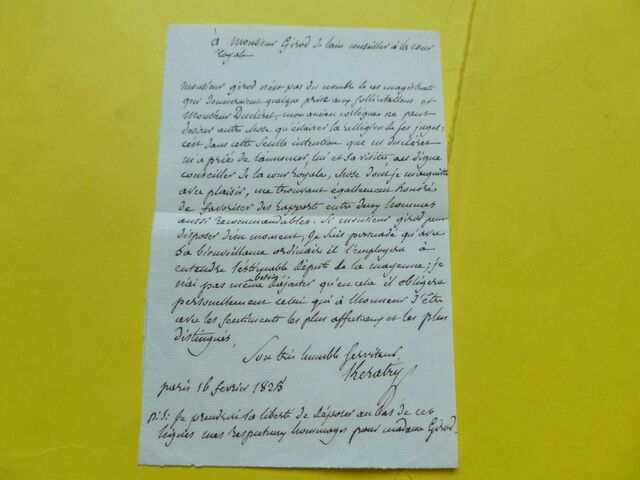 à Monsieur Girod de lain conseiller à la cour
Royale
Monsieur girod n'est pas du nombre de ces magistrats
qui donneraient quelque prise aux sollicitations et
Monsieur Ducléret, mon ancien collègue ne peut
desirer autre chose qu'éclairer la religion de ses juges:
c'est dans cette seule intention que m ducléret
m'a prié de l'annoncer, lui et sa visite, au digne
conseiller de la cour royale, chose dont je m'aquitte
avec plaisir, me trouvant égallement honoré
de favoriser des rapports entre deux hommes
aussi recommandables. Si monsieur girod peut
disposer d'un moment, je suis persuadé qu'avec
sa bienveillance ordinaire il l'employera à
entendre l'estimable député de la mayenne; je
n'ai pas même besoin d'ajouter qu'en cela il obligera
personnellement celui qui à l'honneur d'être
avec les sentiments les plus affectueux et les plus
distingués,
Son très humble Serviteur,
Kératry
paris 16 fevrier 1825
p.S. Je prendrai la liberté de déposer au bas de ces
lignes mes respectueux hommages pour madame Girod.